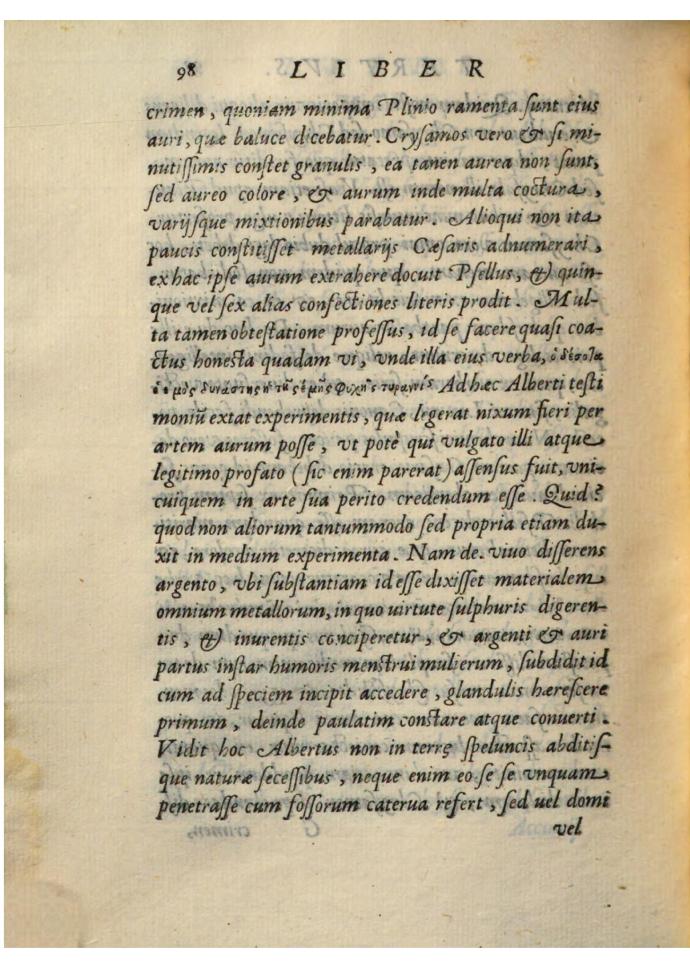 98 LIBER
crimen, quoniam minima Plinio ramenta sunt eius
auri, quæ baluce dicebatur. Crysamos vero & si mi-
nutissimis constet granulis, ea tanen aurea non sunt,
sed aureo colore, & aurum inde multa coctura,
varijsque mixtionibus parabatur. Alioqui non ita
paucis constitisset metallarijs Cæsaris adnumerari,
ex hac ipse aurum extrahere docuit Psellus, & quin-
que vel sex alias confectiones literis prodit. Mul-
ta tamen obtestatione professus, id se facere quasi coa-
ctus honesta quadam vi, vnde illa eius verba, ὁ
δυνάστης τῆς ἐμῆς ψυχῆς Ad hæc Alberti testi
moniũ extat experimentis, quæ legerat nixum fieri per
artem aurum posse, vt potè qui vulgato illi atque
legitimo profato (sic enim parerat) assensus fuit, vni-
cuiquem in arte sua perito credendum esse. Quid?
quod non aliorum tantummodo sed propria etiam du-
xit in medium experimenta. Nam de. viuo differens
argento, vbi substantiam id esse dixisset materialem
omnium metallorum, in quo uirtute sulphuris digeren-
tis, & inurentis conciperetur, & argenti & auri
partus instar humoris menstrui mulierum, subdidit id
cum ad speciem incipit accedere, glandulis hærescere
primum, deinde paulatim constare atque conuerti.
Vidit hoc Albertus non in terrę speluncis abditis-
que naturæ secessibus, neque enim eo se se vnquam
penetrasse cum fossorum caterua refert, sed uel domi
vel